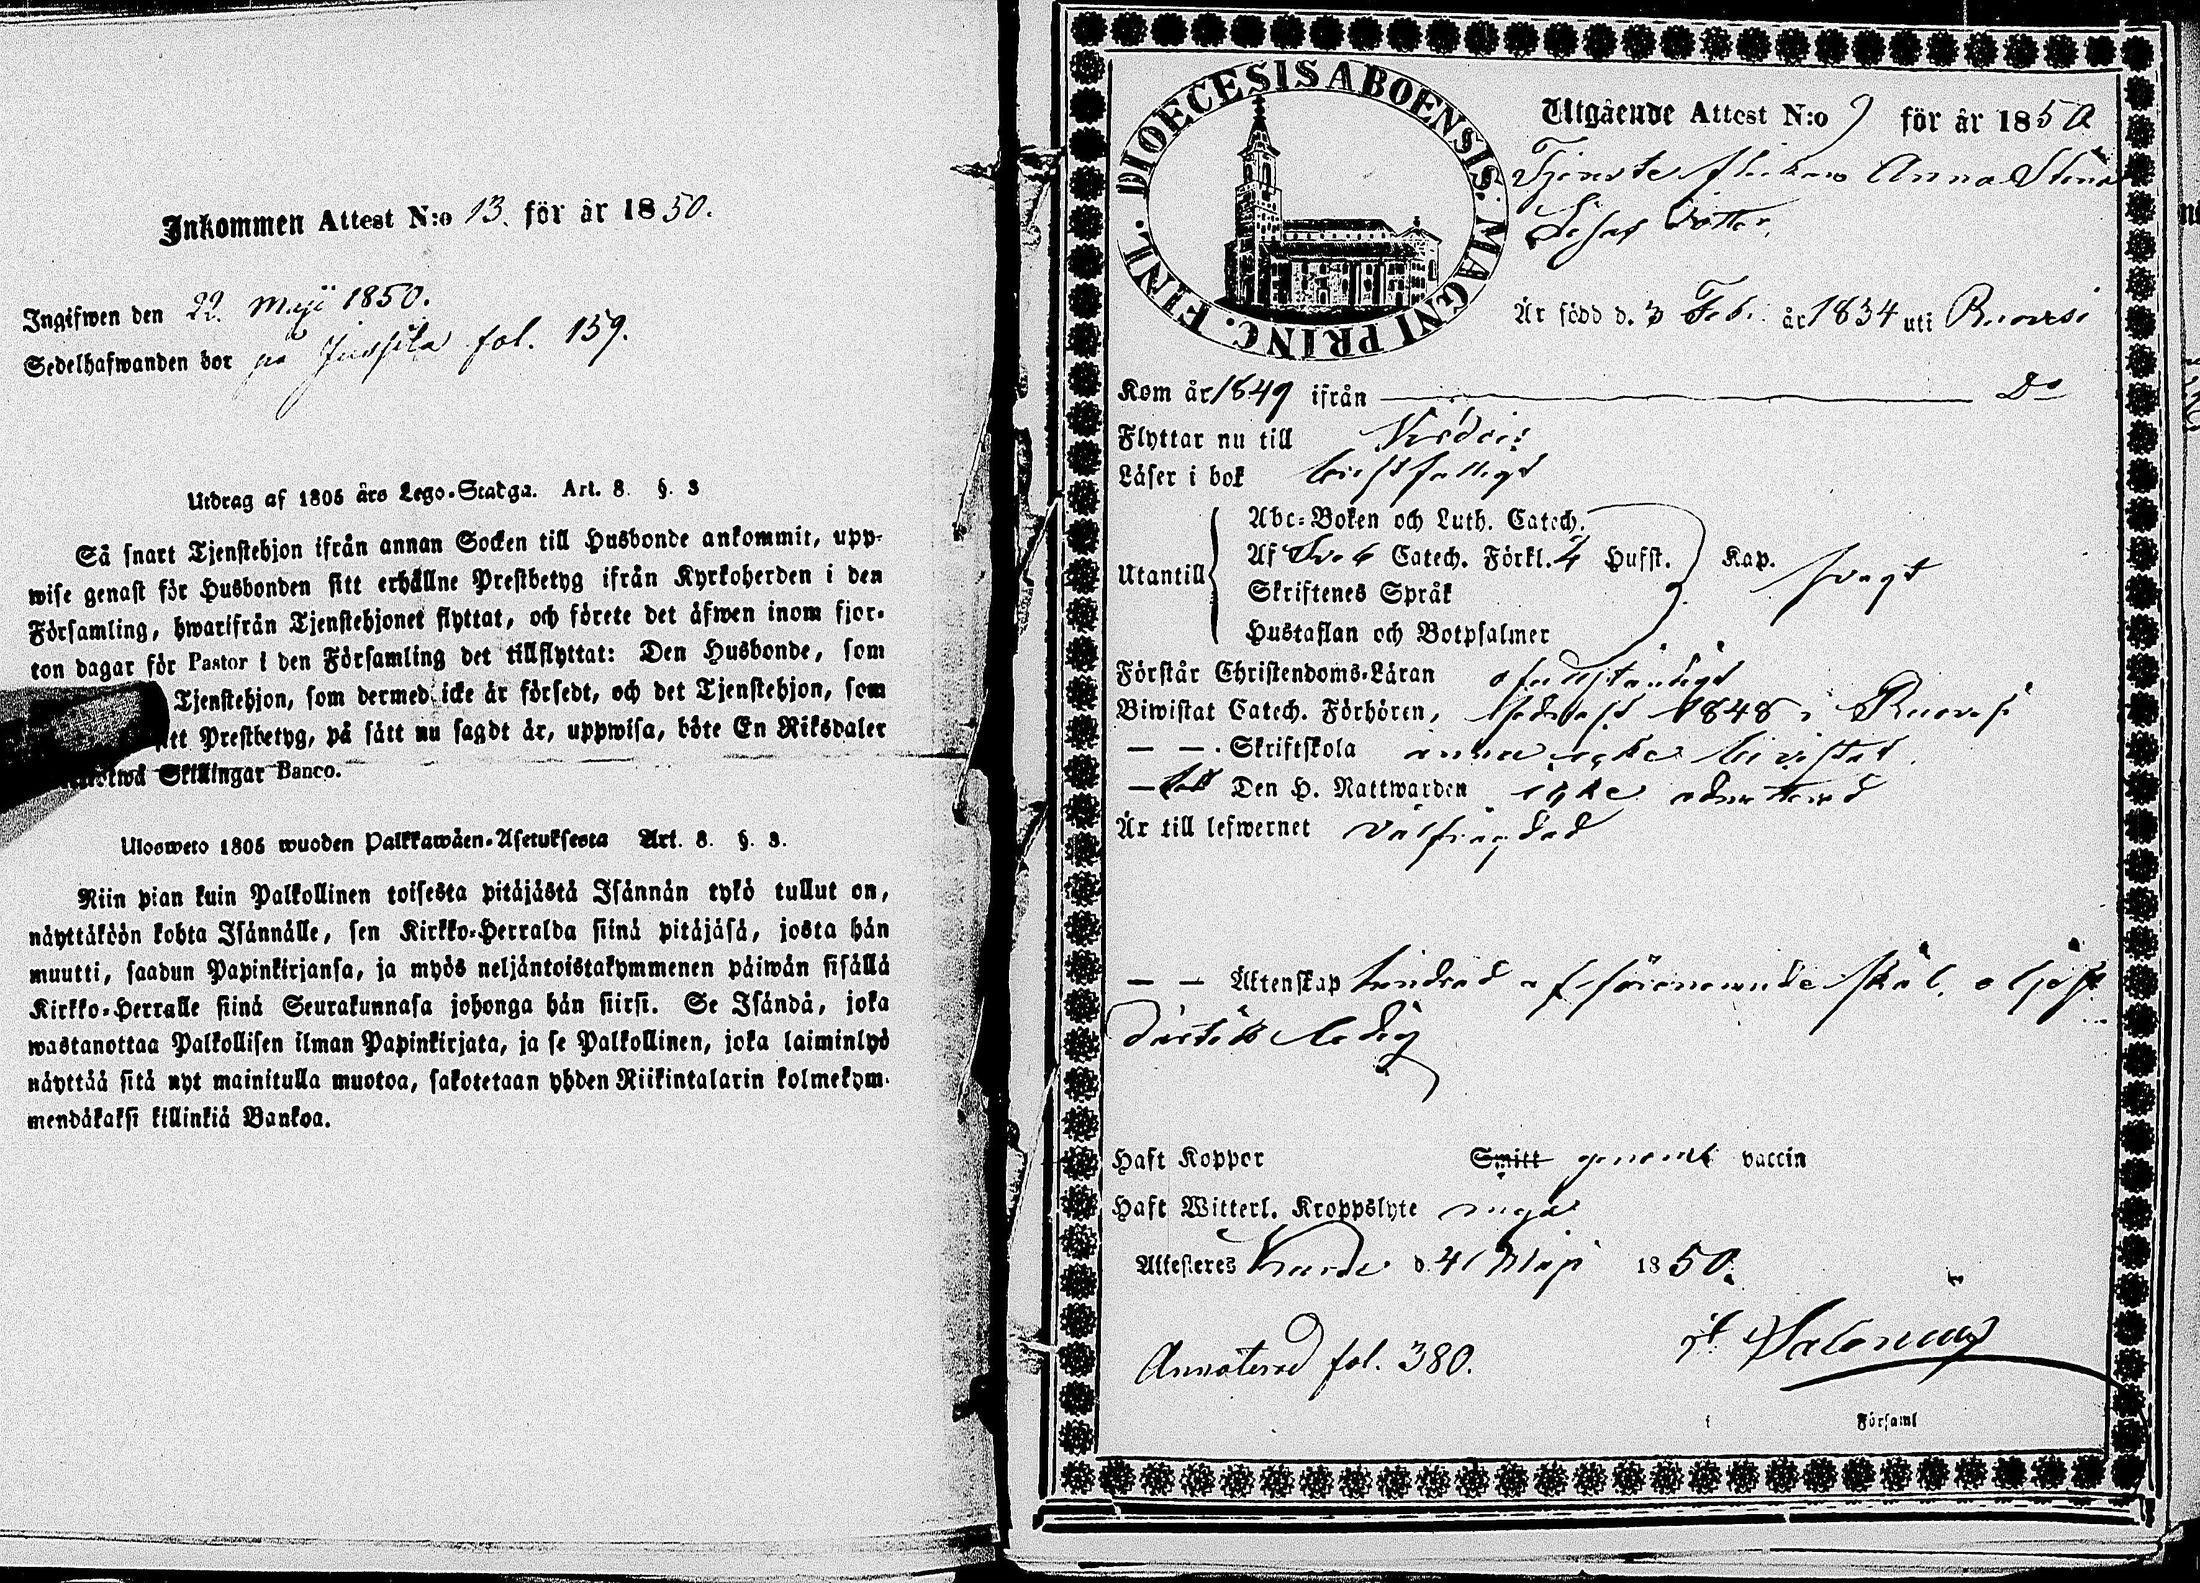 Inkommen Attest N:o 13. för år 1850.
Ingifwen den 22. Maji 1850.
Sedelhafwanden bor på Jussila fol. 159.
Utdrag af 1805 års Lego-Stadga. Art. 8. §. 3
Så snart Tjenstehjon ifrån annan Socken till Husbonde ankommit, upp-
wise genast för Husbonden sitt erhållne Prestbetyg ifrån Kyrkoherden i den
Församling, hwarifrån Tjenstehjonet flyttat, och förete det äfwen inom fjor-
ton dagar för Pastor i den Församling det tillflyttat: Den Husbonde, som
Tjenstehjon, som dermed icke är försedt, och det Tjenstehjon, som
Prestbetyg, på sätt nu sagdt är, uppwisa, böte En Riksdaler
Skillingar Banco.
Ulosweto 1805 wuoden Palkkawäen-Asetuksesta Art. 8. §. 3.
Niin pian kuin Palkollinen toisesta pitäjästä Isännän tykö tullut on,
näyttäköön kohta Isännälle, sen Kirkko-Herralda siinä pitäjäsä, josta hän
muutti, saadun Papinkirjansa, ja myös neljäntoistakymmenen päiwän sisällä
Kirkko-Herralle siinä Seurakunnasa johonga hän siirsi. Se Isändä, joka
wastanottaa Palkollisen ilman Papinkirjata, ja se Palkollinen, joka laiminlyö
näyttää sitä nyt mainitulla muotoa, sakotetaan yhden Riikintalarin kolmekym-
mendäkaksi killinkiä Bankoa.
DIOECESIS ABOENSIS. MAGNI PRINC. FINL.
Utgående Attest N:o 9 för år 1850
Tjenste flickan Anna Stina
Är född d. 3 Feb. år 1834 uti Ruovesi
Kom år 1849 ifrån Do
Flyttar nu till
Läser i bok
Utantill
Abc-Boken och Luth. Catech.
Af Sveb Catech. Förkl. 4 Hufst. Kap. svagt
Skriftenes Språk
Hustaflan och Botpsalmer
Förstår Christendoms-Läran ofullständigt
Biwistat Catech. Förhören, 1848 i Ruovesi
— — Skriftskola ännu icke bivistat
— Den H. Nattwarden icke admitterad
Är till lefwernet välfrägdad
— — Äktenskap hindrad af förenämnde skäl,
ledig
Haft Koppor Smitt genom vaccin
Haft Witterl. Kroppslyte inga
Attesteres d. 4 Maji 1850.
Annoterad fol. 380.
i Församl